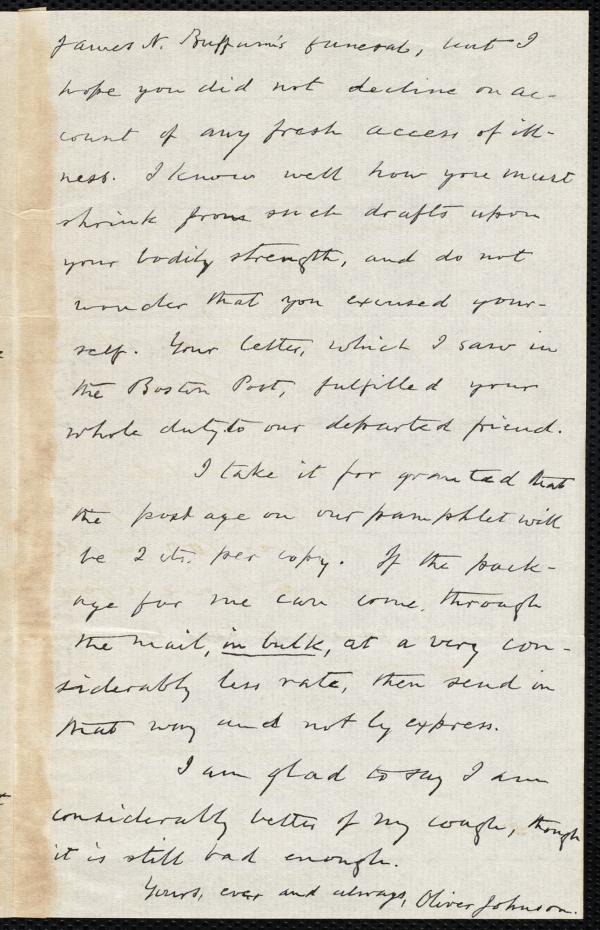 James N. Buffum's funeral, but I
hope you did not decline on ac-
count of any fresh access of ill-
ness. I know well how you must
shrink from such drafts upon
your bodily strength, and do not
wonder that you excused your-
self. Your letter, which I saw in
the Boston Post, fulfilled your
whole duty to our departed friend.
I take it for granted that
the postage on our pamphlet will
be 2 cts. per copy. If the pack-
age for me can come through
the mail, in bulk, at a very con-
siderably less rate, then send in
that way and not by express.
I am glad to say I am
considerably better of my cough, though
it is still bad enough.
Yours, ever and always, Oliver Johnson.